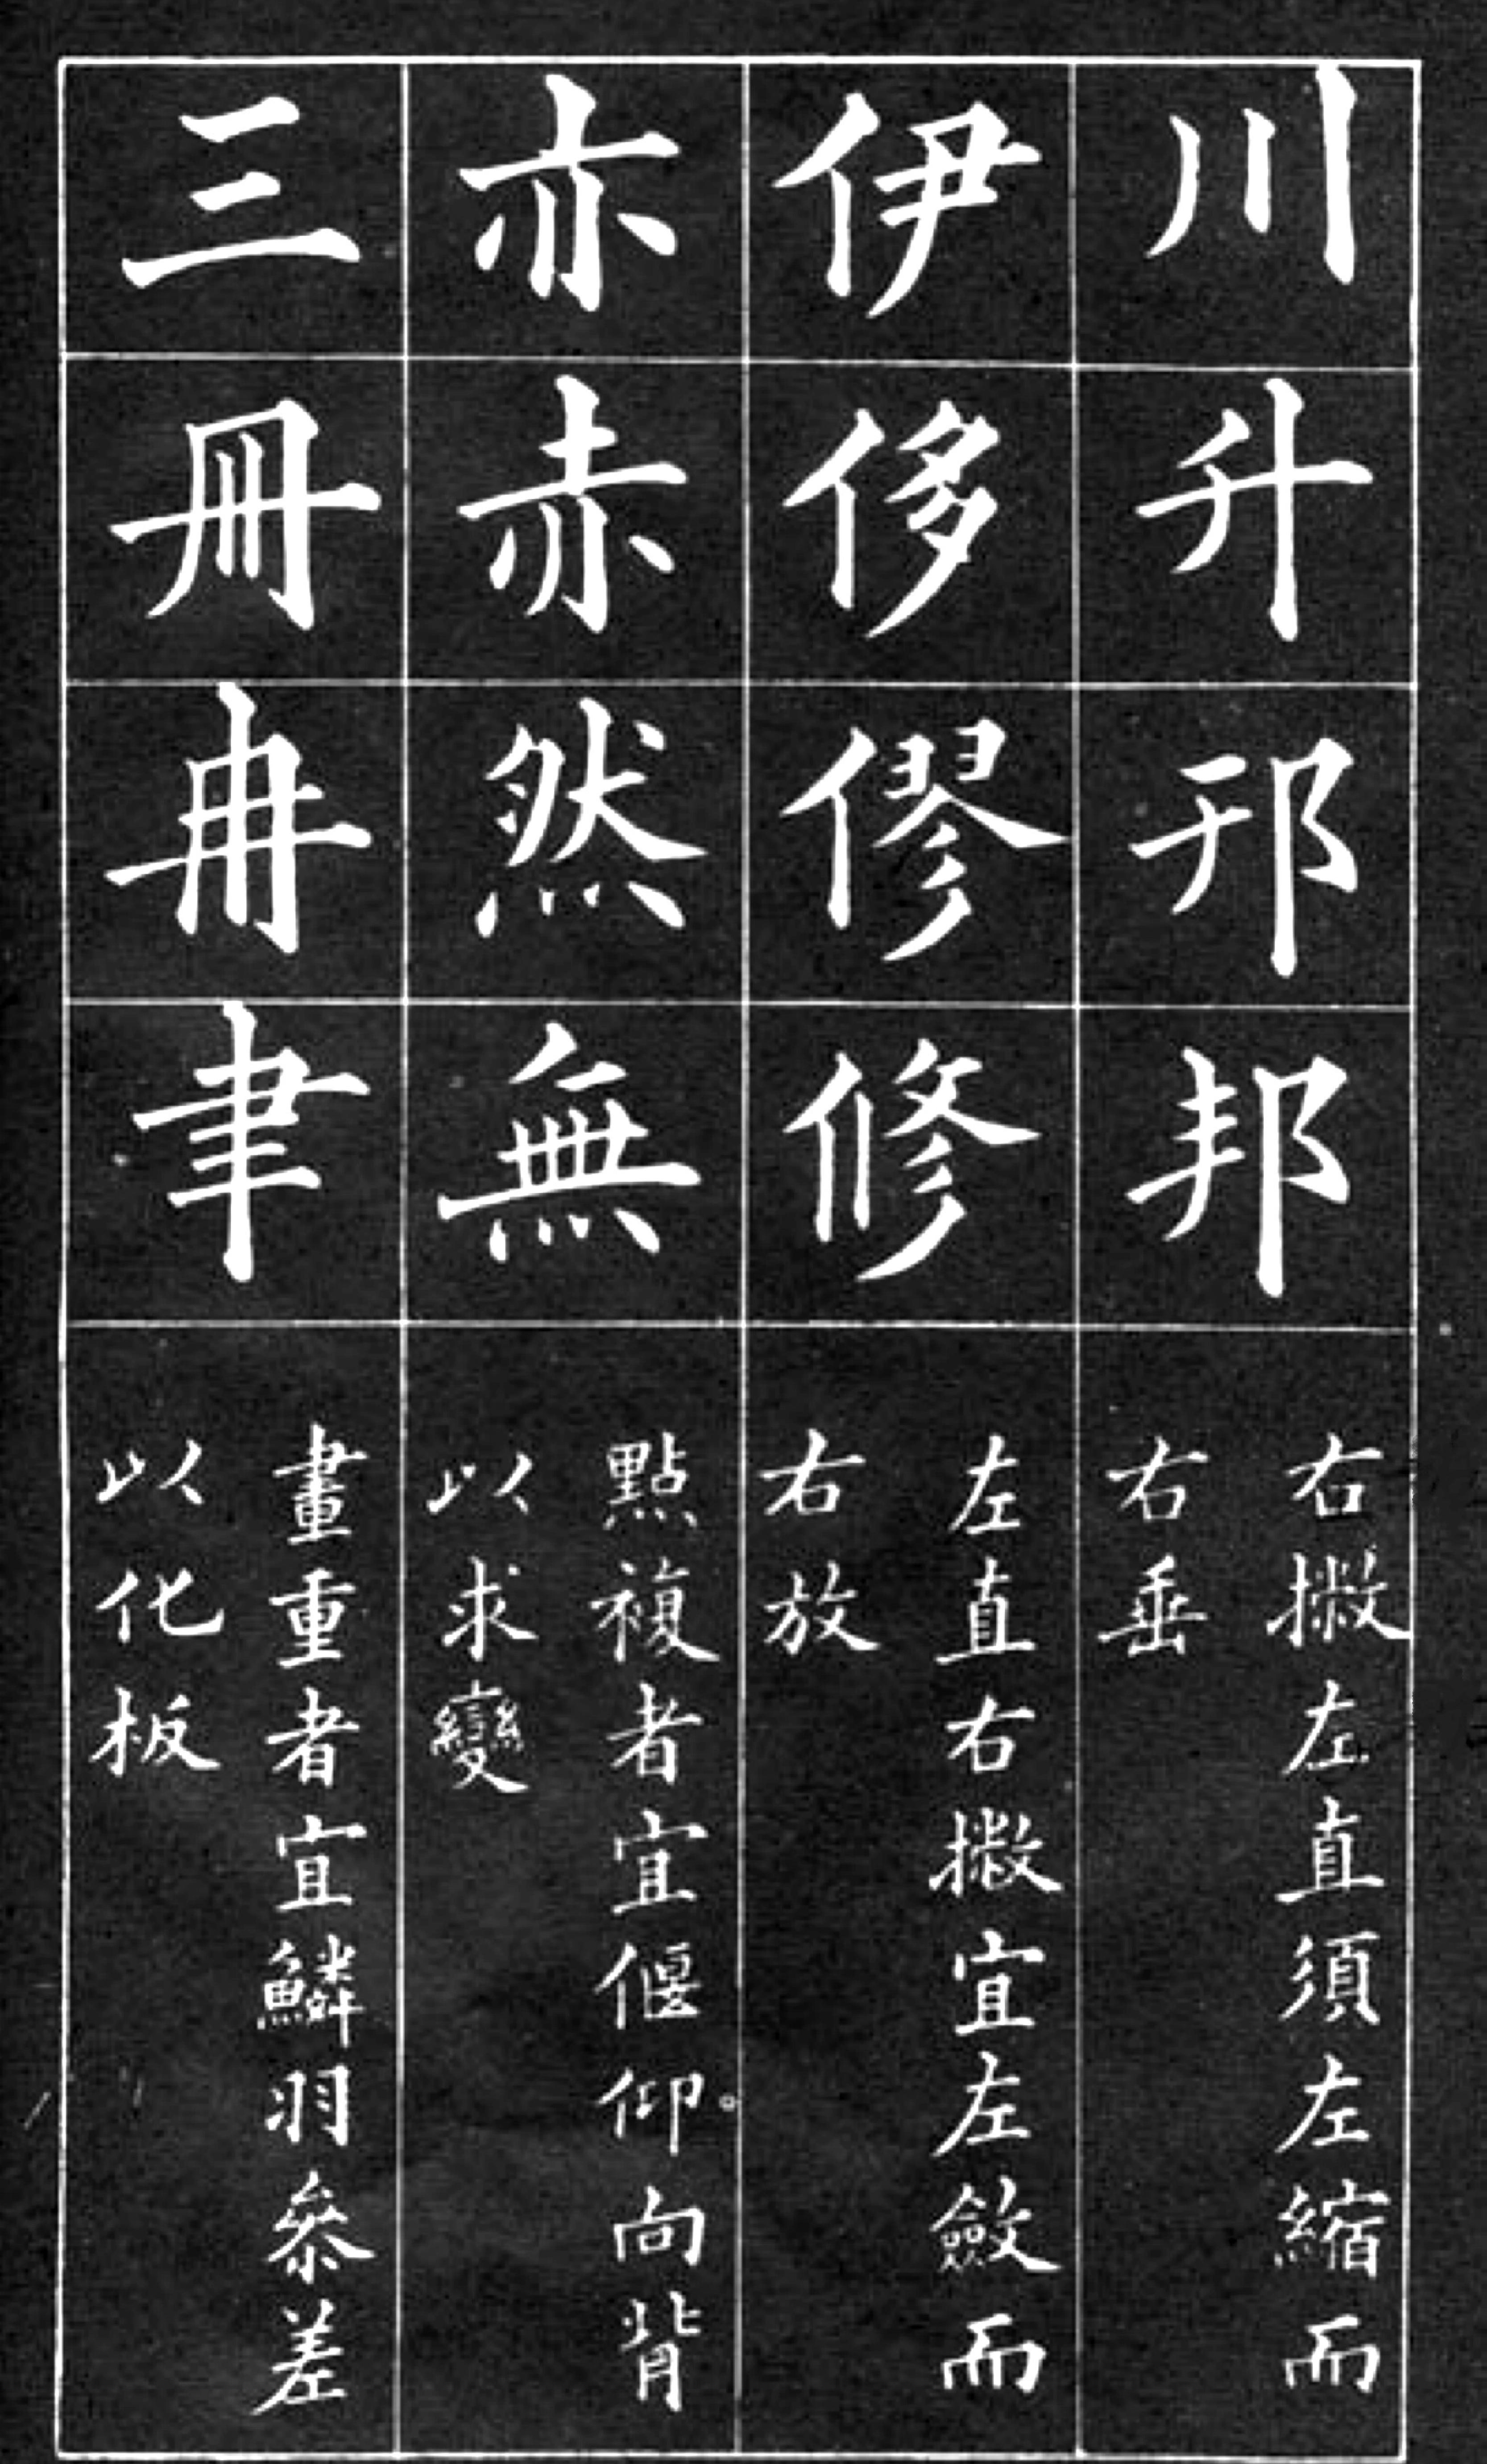 川
升
邘
邦
右撇左直須左縮而
右垂
伊
侈
僇
修
左直右撇宜左斂而
右放
亦
赤
然
無
點複者宜偃仰向背
以求變
三
冊
冉
聿
畫重者宜鱗羽參差
以化板